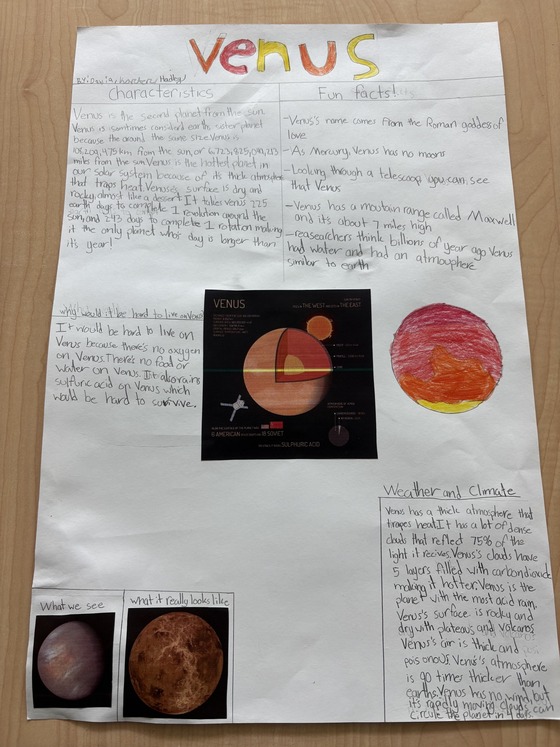 Venus
Characteristics
Venus is the second planet from the sun.
Venus is somtimes considerd earths sister planet
because they around the same size. Venus is
miles from the sun. Venus is the hottest planet in
our solar system because of its thick atmosphere
that traps heat. Venus's surface is dry and
rocky, almost like a desert. It takes Venus 225
earth days to complete 1 revolution around the
sun, and 243 days to complete 1 rotation making
it the only planet who's day is longer than
it's year!
Fun facts!
-Venus's name comes from the Roman goddess of
love
-As Mercury, Venus has no moons
-Looking through a telescope you can see
that Venus
-Venus has a moutain range called Maxwell
and its about 7 miles high
-reasearchers think billions of year ago Venus
had water and had an atmosphere
similar to earth
why would it be hard to live on Venus?
It would be hard to live on
Venus because there's no oxygen
on Venus. There's no food or
water on Venus. It also rains
sulfuric acid on Venus which
would be hard to survive.
VENUS
THE WEST THE EAST
AMERICAN 18 SOVIET
SULPHURIC ACID
Weather and Climate
Venus has a thick atmosphere that
trapes heat. It has a lot of dense
clouds that reflect 75% of the
light it recives. Venus's clouds have
5 layers filled with carbondioxide
making it hotter. Venus is the
planet with the most acid rain.
Venus's surface is rocky and
dry with plateaus and volcanos
Venus's air is thick and
poisonous. Venus's atmosphere
is 90 times thicker than
earths. Venus has no wind, but
it's rapidly moving clouds can
circule the planet in 4 days.
What we see
what it really looks like